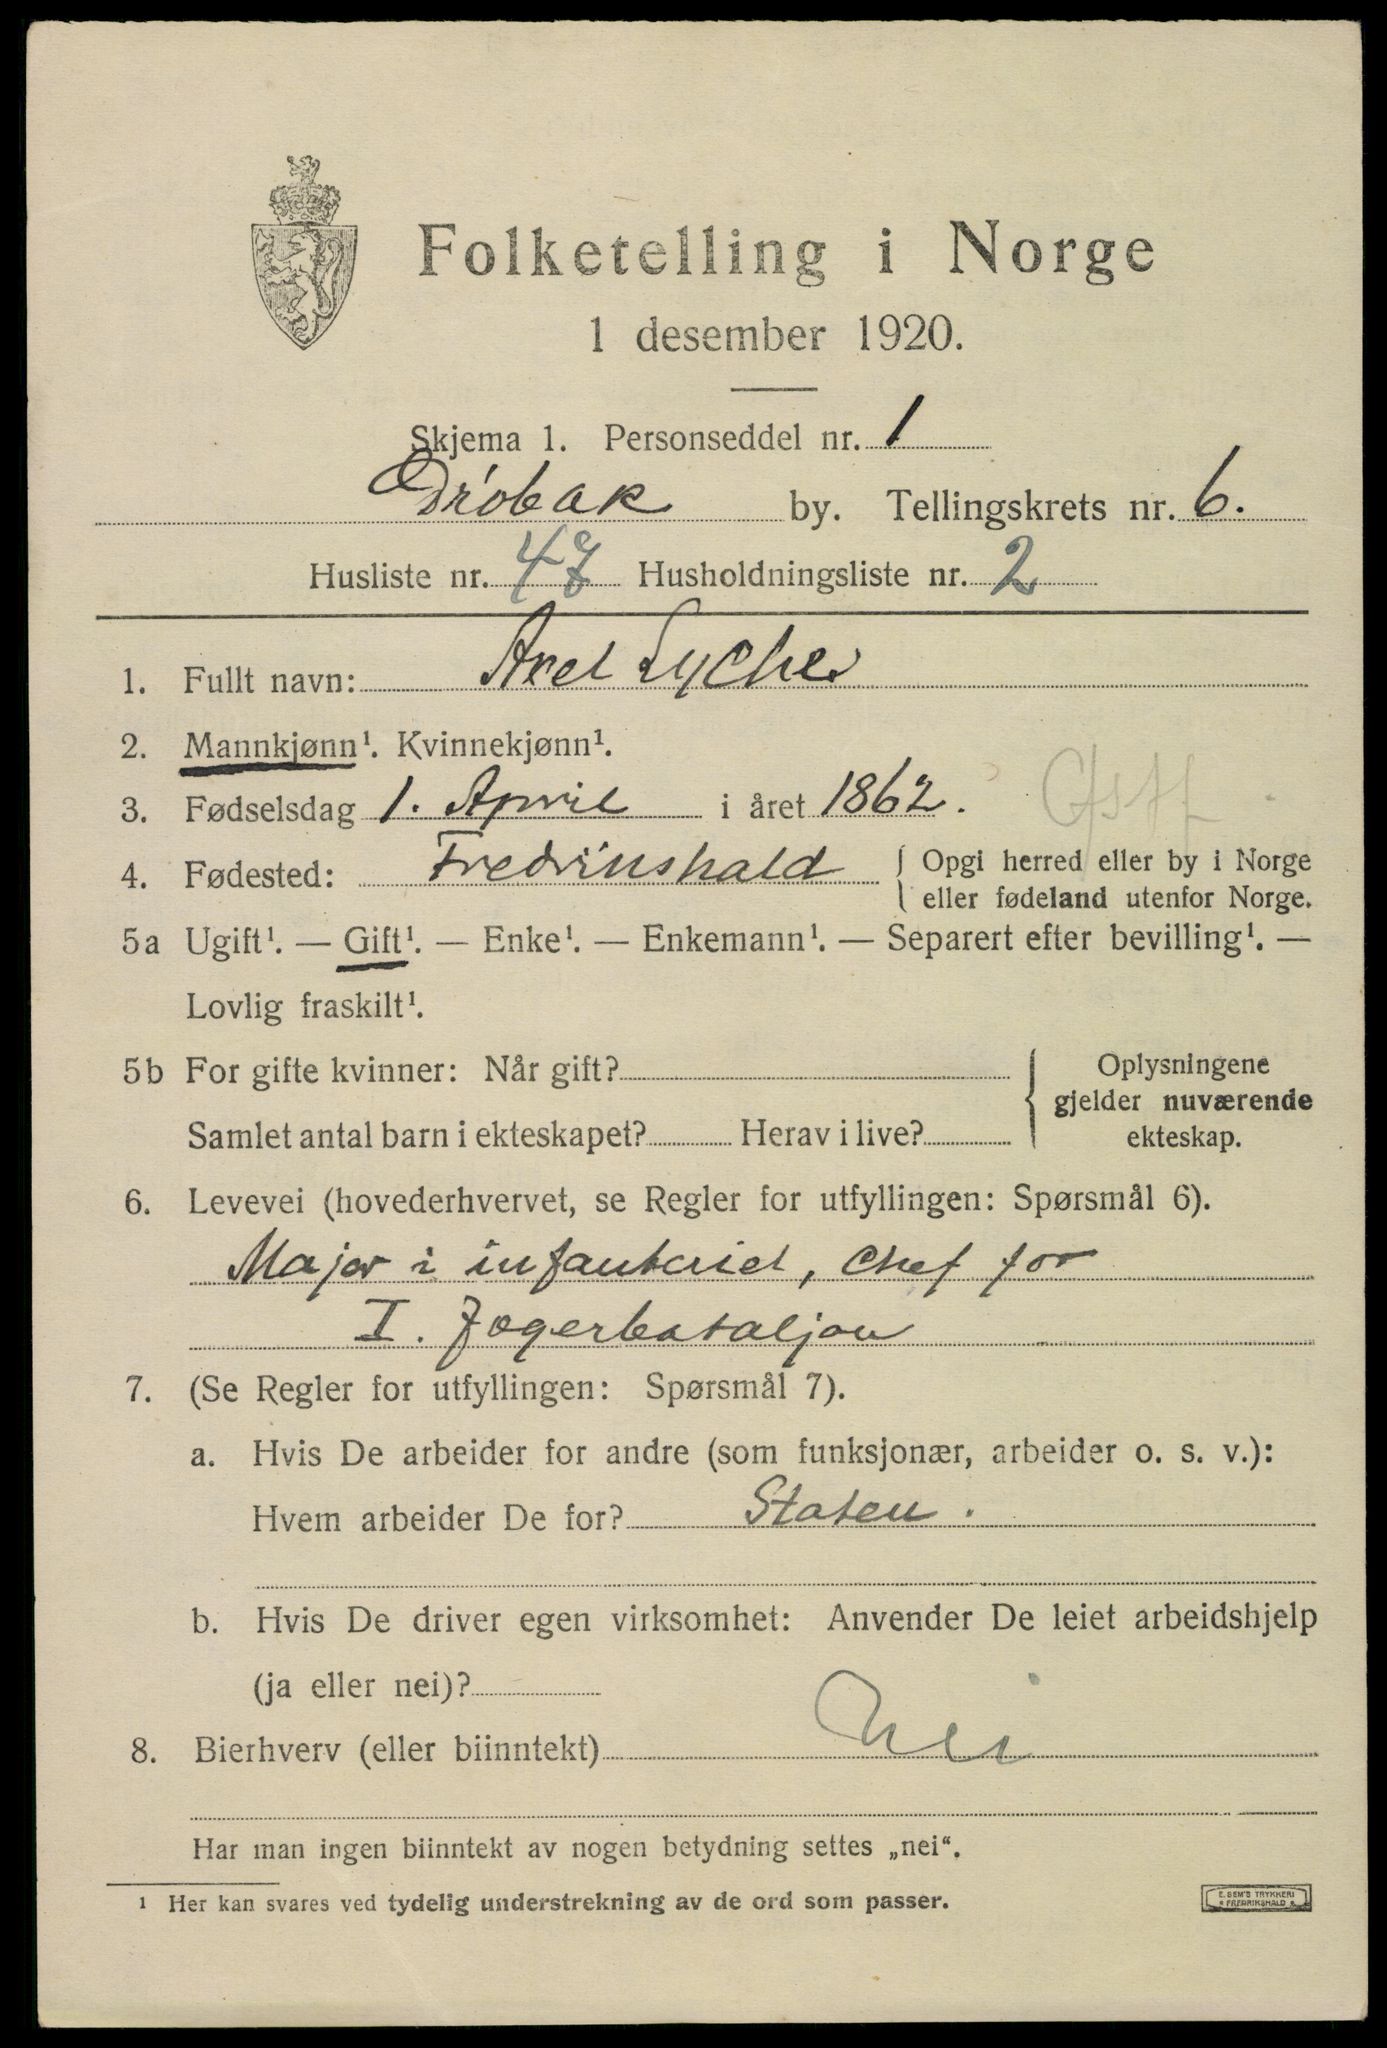 Folketelling i Norge
1 desember 1920.
Skjema 1. Personseddel nr. 1
Drøbak by. Tellingskrets nr. 6.
Husliste nr. 47 Husholdningsliste nr. 2
1. Fullt navn: Axel Lyche
2. Mannkjønn¹. Kvinnekjønn¹.
3. Fødselsdag 1. April i året 1862.
4. Fødested: Fredrikshald { Opgi herred eller by i Norge
eller fødeland utenfor Norge.
5a Ugift¹. — Gift¹. — Enke¹. — Enkemann¹. — Separert efter bevilling¹. —
Lovlig fraskilt¹.
5b For gifte kvinner: Når gift?
Samlet antal barn i ekteskapet? Herav i live?
{ Oplysningene
gjelder nuværende
ekteskap.
6. Levevei (hovederhvervet, se Regler for utfyllingen: Spørsmål 6).
Major i infanteriet, chef for
I. Jegerbataljon
7. (Se Regler for utfyllingen: Spørsmål 7).
a. Hvis De arbeider for andre (som funksjonær, arbeider o. s. v.):
Hvem arbeider De for? Staten.
b. Hvis De driver egen virksomhet: Anvender De leiet arbeidshjelp
(ja eller nei)?
8. Bierhverv (eller biinntekt) Nei
Har man ingen biinntekt av nogen betydning settes „nei“.
¹ Her kan svares ved tydelig understrekning av de ord som passer.
E. SEM'S TRYKKERI
FREDRIKSHALD